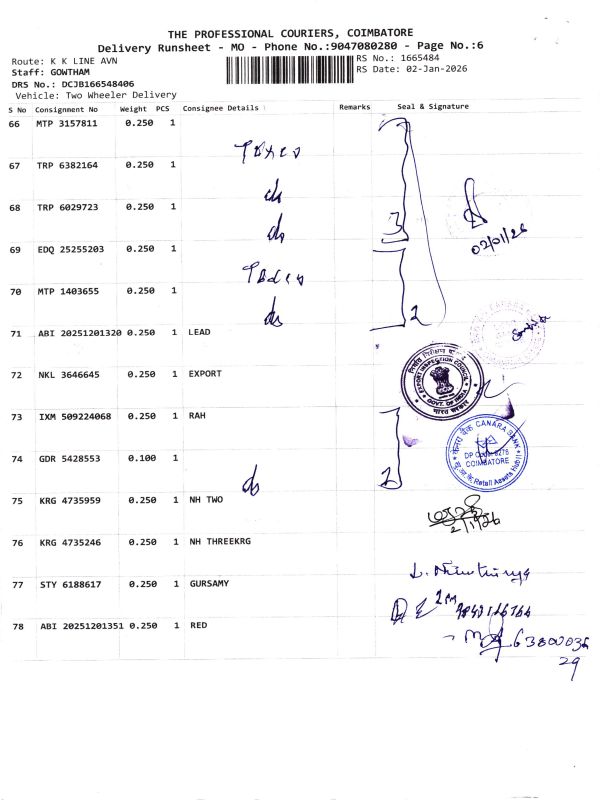 THE PROFESSIONAL COURIERS, COIMBATORE
Delivery Runsheet - MO - Phone No.:9047080280 - Page No.:6
Route: K K LINE AVN
RS No.: 1665484
Staff: GOWTHAM
RS Date: 02-Jan-2026
DRS No.: DCJB166548406
Vehicle: Two Wheeler Delivery
S No Consignment No Weight PCS Consignee Details Remarks Seal & Signature
66 MTP 3157811 0.250 1
67 TRP 6382164 0.250 1
68 TRP 6029723 0.250 1
3
02/01/26
69 EDQ 25255203 0.250 1
70 MTP 1403655 0.250 1
2
71 ABI 20251201320 0.250 1 LEAD
72 NKL 3646645 0.250 1 EXPORT
EXPORT INSPECTION COUNCIL
GOVT. OF INDIA
भारत सरकार
73 IXM 509224068 0.250 1 RAH
केनरा बैंक CANARA BANK
74 GDR 5428553 0.100 1
COIMBATORE
Retail Assets Hub
2
75 KRG 4735959 0.250 1 NH TWO
2/1/26
76 KRG 4735246 0.250 1 NH THREEKRG
77 STY 6188617 0.250 1 GURSAMY
78 ABI 20251201351 0.250 1 RED
63800036
29